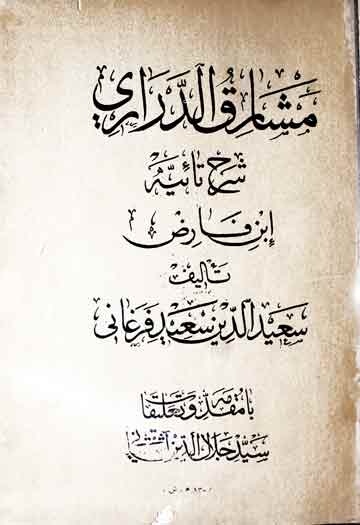 مَشارِقُ الدَّرارِي
شرح تائیّه
اِبنِ فارِض
تألیف
سَعیدالدّین سَعید فَرغانی
با مقدمه و تعلیقات
سیّد جلال‌الدّین آشتیانی